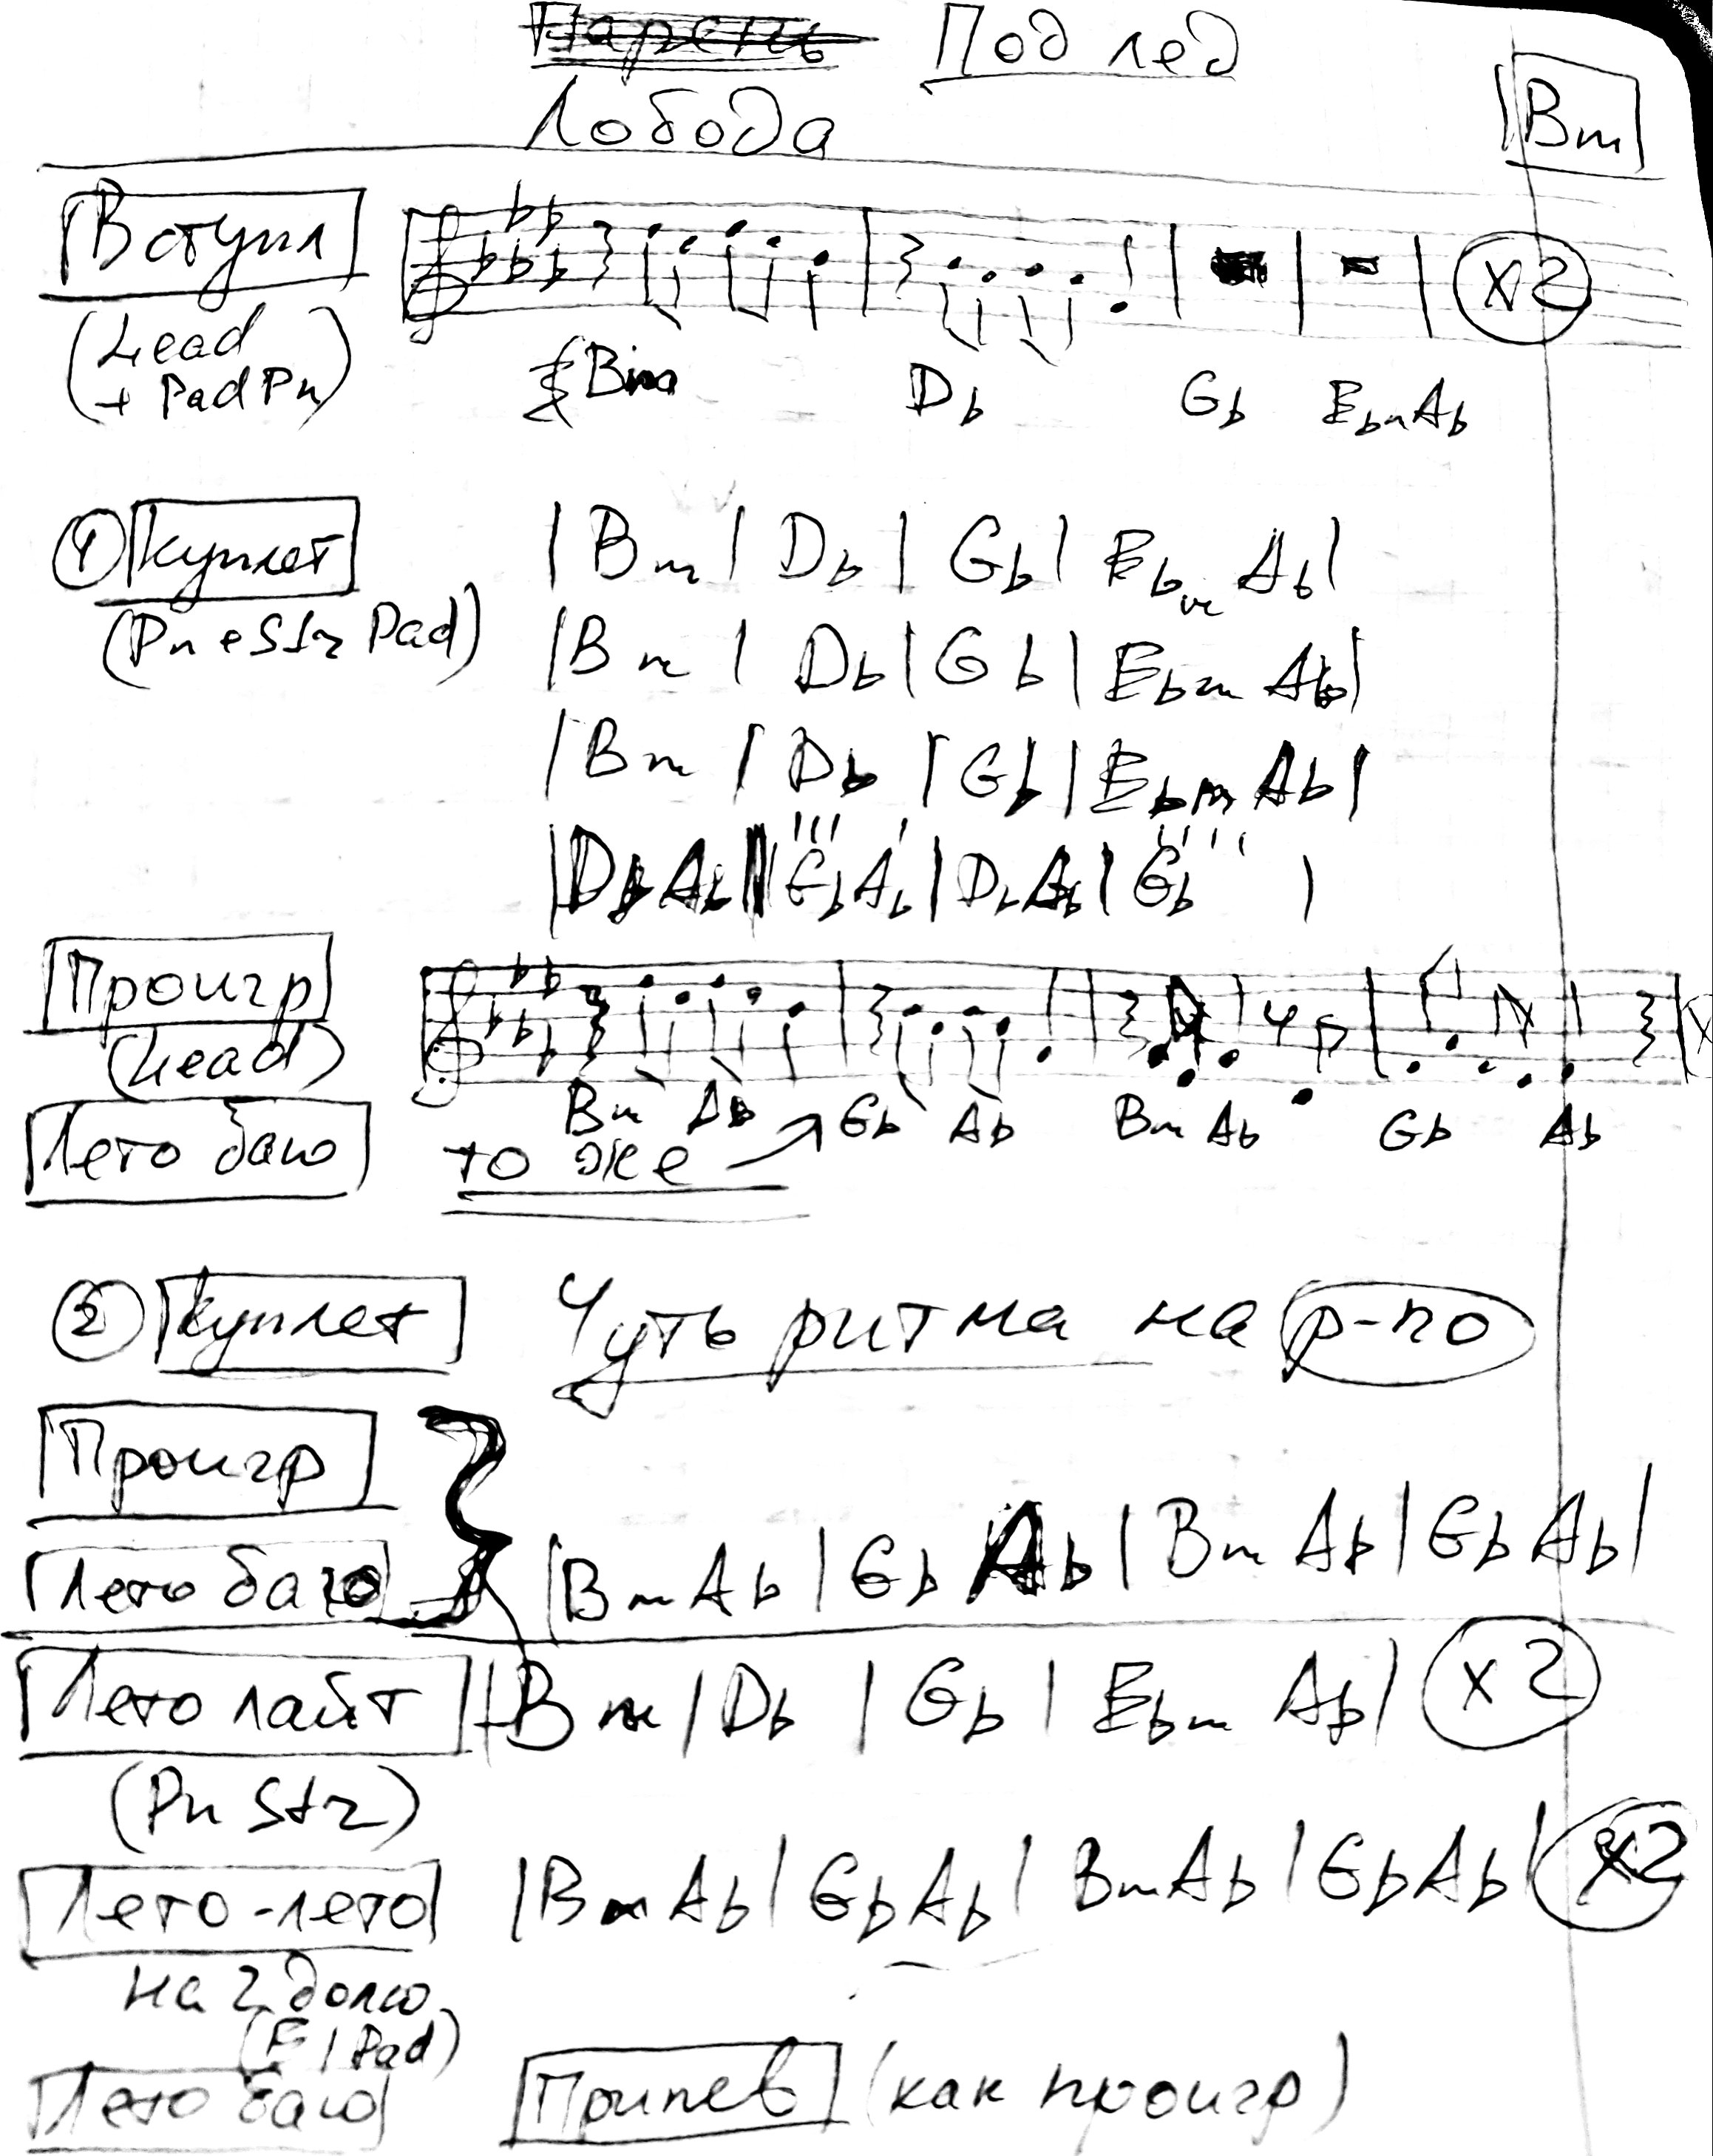 Под лед
Лобода
Bm
Вступл
(Lead
+ Pad Pn)
x2
Bm Db Gb Ebm Ab
① Куплет
(Pn e Str Pad)
| Bm | Db | Gb | Ebm Ab |
| Bm | Db | Gb | Ebm Ab |
| Bm | Db | Gb | Ebm Ab |
| Db Ab | Gb Ab | Db Ab | Gb |
Проигр
(Lead)
Bm Ab Gb Ab Bm Ab Gb Ab
Лето баю то же
② Куплет Чуть ритма на р-по
Проигр
Лето баю | Bm Ab | Gb Ab | Bm Ab | Gb Ab |
Лето лайт | Bm | Db | Gb | Ebm Ab | x2
(Pn Str)
Лето-лето | Bm Ab | Gb Ab | Bm Ab | Gb Ab | x2
на 2 долю
(El Pad)
Лето баю Припев (как проигр)